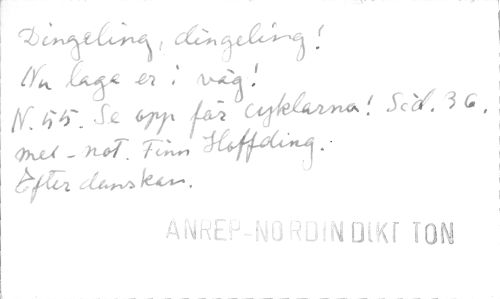 Dingeling, dingeling!
Nu laga er i väg!
N. 55. Se opp för cyklarna! Sid. 36.
mel-not. Finn Høffding.
Efter danskan.
ANREP-NORDIN DIKT TON